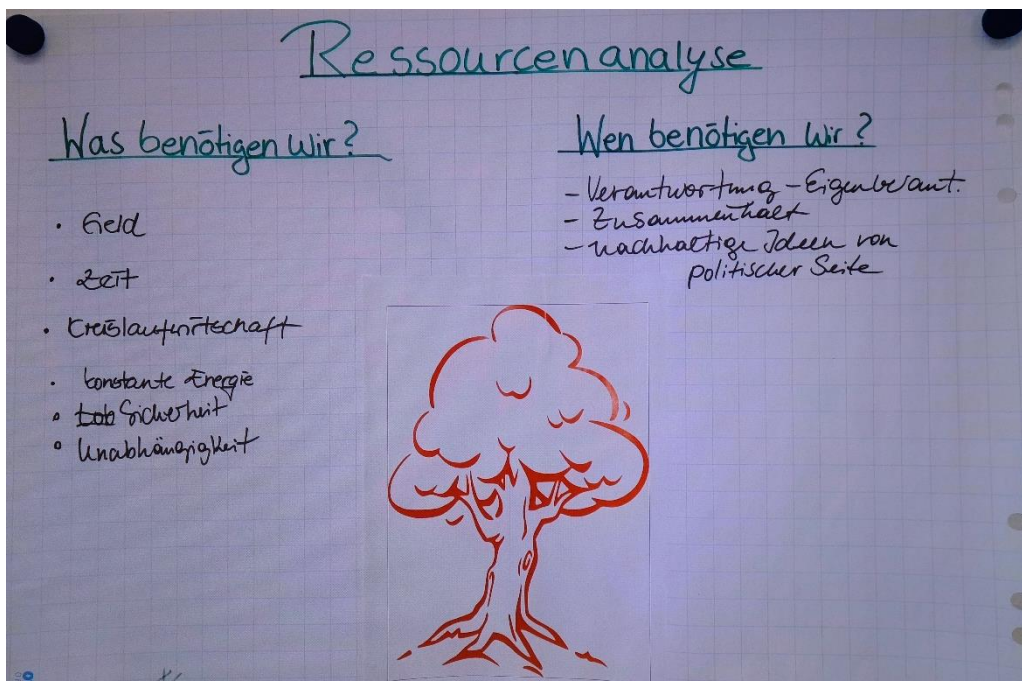 Ressourcenanalyse
Was benötigen wir?
· Geld
· Zeit
· Kreislaufwirtschaft
· konstante Energie
· Sicherheit
· Unabhängigkeit
Wen benötigen wir?
- Verantwortung - Eigenverant.
- Zusammenhalt
- nachhaltige Ideen von
politischer Seite